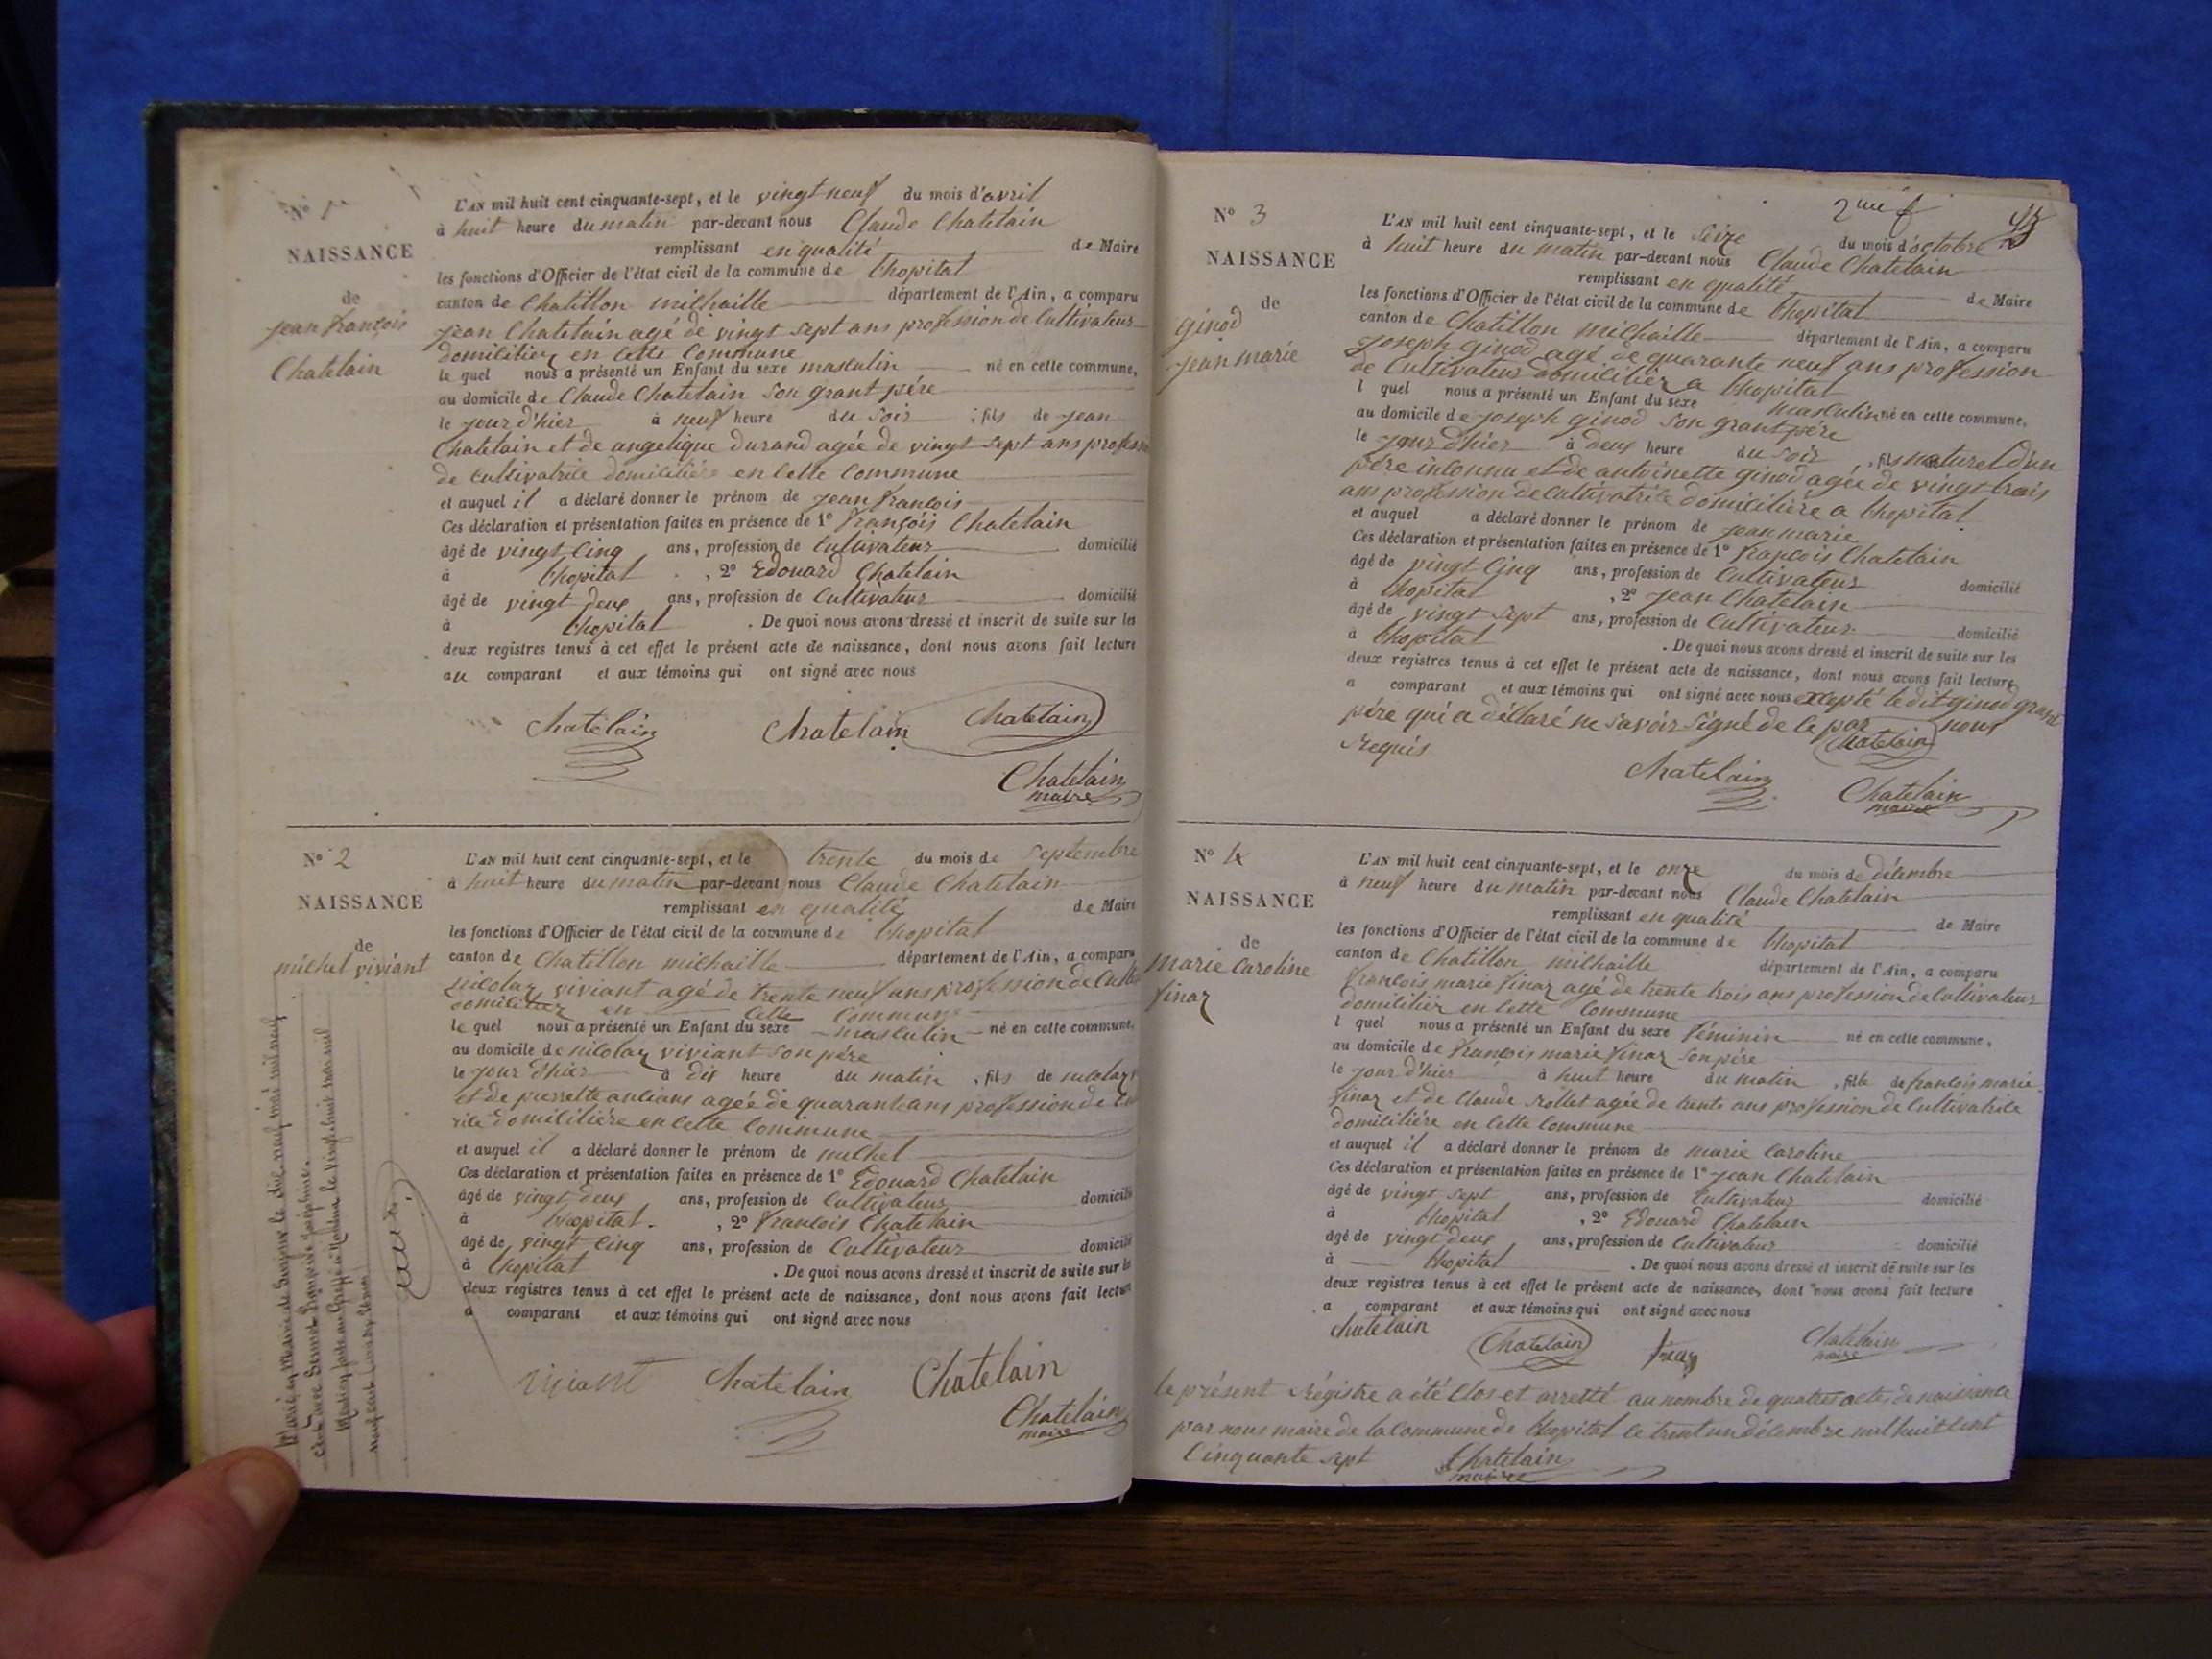 Nº 1
NAISSANCE
de
jean françois
Chatelain
L'AN mil huit cent cinquante-sept, et le vingt neuf du mois d'avril
à huit heure du matin par-devant nous Claude Chatelain
remplissant en qualité de Maire
les fonctions d'Officier de l'état civil de la commune de l'hopital
canton de Chatillon michaille département de l'Ain, a comparu
jean Chatelain agé de vingt sept ans profession de Cultivateur
domicilier en cette Commune
le quel nous a présenté un Enfant du sexe masculin né en cette commune,
au domicile de Claude Chatelain son grant pére
le jour d'hier à neuf heure du soir ; fils de jean
Chatelain et de angelique durand agée de vingt sept ans profession
de cultivatrice domicilière en cette Commune
et auquel il a déclaré donner le prénom de jean françois
Ces déclaration et présentation faites en présence de 1º françois Chatelain
âgé de vingt Cinq ans, profession de Cultivateur domicilié
à l'hopital , 2º Edouard Chatelain
âgé de vingt deux ans, profession de Cultivateur domicilié
à l'hopital . De quoi nous avons dressé et inscrit de suite sur les
deux registres tenus à cet effet le présent acte de naissance, dont nous avons fait lecture
au comparant et aux témoins qui ont signé avec nous
Chatelain Chatelain Chatelain
Chatelain
maire
Nº 2
NAISSANCE
de
michel viviant
L'AN mil huit cent cinquante-sept, et le trente du mois de Septembre
à huit heure du matin par-devant nous Claude Chatelain
remplissant en qualité de Maire
les fonctions d'Officier de l'état civil de la commune de l'hopital
canton de Chatillon michaille département de l'Ain, a comparu
nicolaz viviant agé de trente neuf ans profession de Culti
domicilier en cette Commune
le quel nous a présenté un Enfant du sexe masculin né en cette commune,
au domicile de nicolaz viviant son pére
le jour d'hier à dix heure du matin , fils de nicolaz
et de pierrette antians agée de quarante ans profession de
domicilière en cette Commune
et auquel il a déclaré donner le prénom de michel
Ces déclaration et présentation faites en présence de 1º Edouard Chatelain
âgé de vingt deux ans, profession de Cultivateur domicilié
à l'hopital. , 2º francois Chatelain
âgé de vingt Cinq ans, profession de Cultivateur domicilié
à l'hopital . De quoi nous avons dressé et inscrit de suite sur les
deux registres tenus à cet effet le présent acte de naissance, dont nous avons fait lecture
a comparant et aux témoins qui ont signé avec nous
viviant Chatelain Chatelain
Chatelain
maire
Marié en Mairie de le dix neuf mai mil neuf
cent avec Joséphine.
Mention faite au Greffe à Nantua le vingt huit mai mil
neuf cent
2me f
Nº 3
NAISSANCE
de
ginod
jean marie
L'AN mil huit cent cinquante-sept, et le seize du mois d'octobre
à huit heure du matin par-devant nous Claude Chatelain
remplissant en qualité de Maire
les fonctions d'Officier de l'état civil de la commune de l'hopital
canton de Chatillon michaille département de l'Ain, a comparu
joseph ginod agé de quarante neuf ans profession
de Cultivateur domicilier a l'hopital
l quel nous a présenté un Enfant du sexe masculin né en cette commune,
au domicile de joseph ginod son grant pére
le jour d'hier à deux heure du soir , fils naturel d'un
pére inconnu et de antoinette ginod agée de vingt trois
ans profession de cultivatrice domicilière a l'hopital
et auquel a déclaré donner le prénom de jean marie
Ces déclaration et présentation faites en présence de 1º françois Chatelain
âgé de vingt Cinq ans, profession de Cultivateur domicilié
à l'hopital , 2º jean Chatelain
âgé de vingt sept ans, profession de Cultivateur domicilié
à l'hopital . De quoi nous avons dressé et inscrit de suite sur les
deux registres tenus à cet effet le présent acte de naissance, dont nous avons fait lecture
a comparant et aux témoins qui ont signé avec nous excepté le dit ginod grant
pére qui a déclaré ne savoir signé de ce par nous
requis
Chatelain
Chatelain
Chatelain
maire
Nº 4
NAISSANCE
de
marie Caroline
finaz
L'AN mil huit cent cinquante-sept, et le onze du mois de décembre
à neuf heure du matin par-devant nous Claude Chatelain
remplissant en qualité de Maire
les fonctions d'Officier de l'état civil de la commune de l'hopital
canton de Chatillon michaille département de l'Ain, a comparu
françois marie finaz agé de trente trois ans profession de Cultivateur
domicilier en cette Commune
l quel nous a présenté un Enfant du sexe féminin né en cette commune,
au domicile de françois marie finaz son pére
le jour d'hier à huit heure du matin , fille de francois marie
finaz et de Claude rollet agée de trente ans profession de Cultivatrice
domicilière en cette Commune
et auquel il a déclaré donner le prénom de marie Caroline
Ces déclaration et présentation faites en présence de 1º jean Chatelain
âgé de vingt sept ans, profession de Cultivateur domicilié
à l'hopital , 2º Edouard Chatelain
âgé de vingt deux ans, profession de Cultivateur domicilié
à l'hopital . De quoi nous avons dressé et inscrit de suite sur les
deux registres tenus à cet effet le présent acte de naissance, dont nous avons fait lecture
a comparant et aux témoins qui ont signé avec nous
Chatelain Chatelain finaz Chatelain
maire
le présent régistre a été Clos et arretté au nombre de quatres actes de naissance
par nous maire de la Commune de l'hopital le trent un décembre mil huit cent
Cinquante sept Chatelain
maire